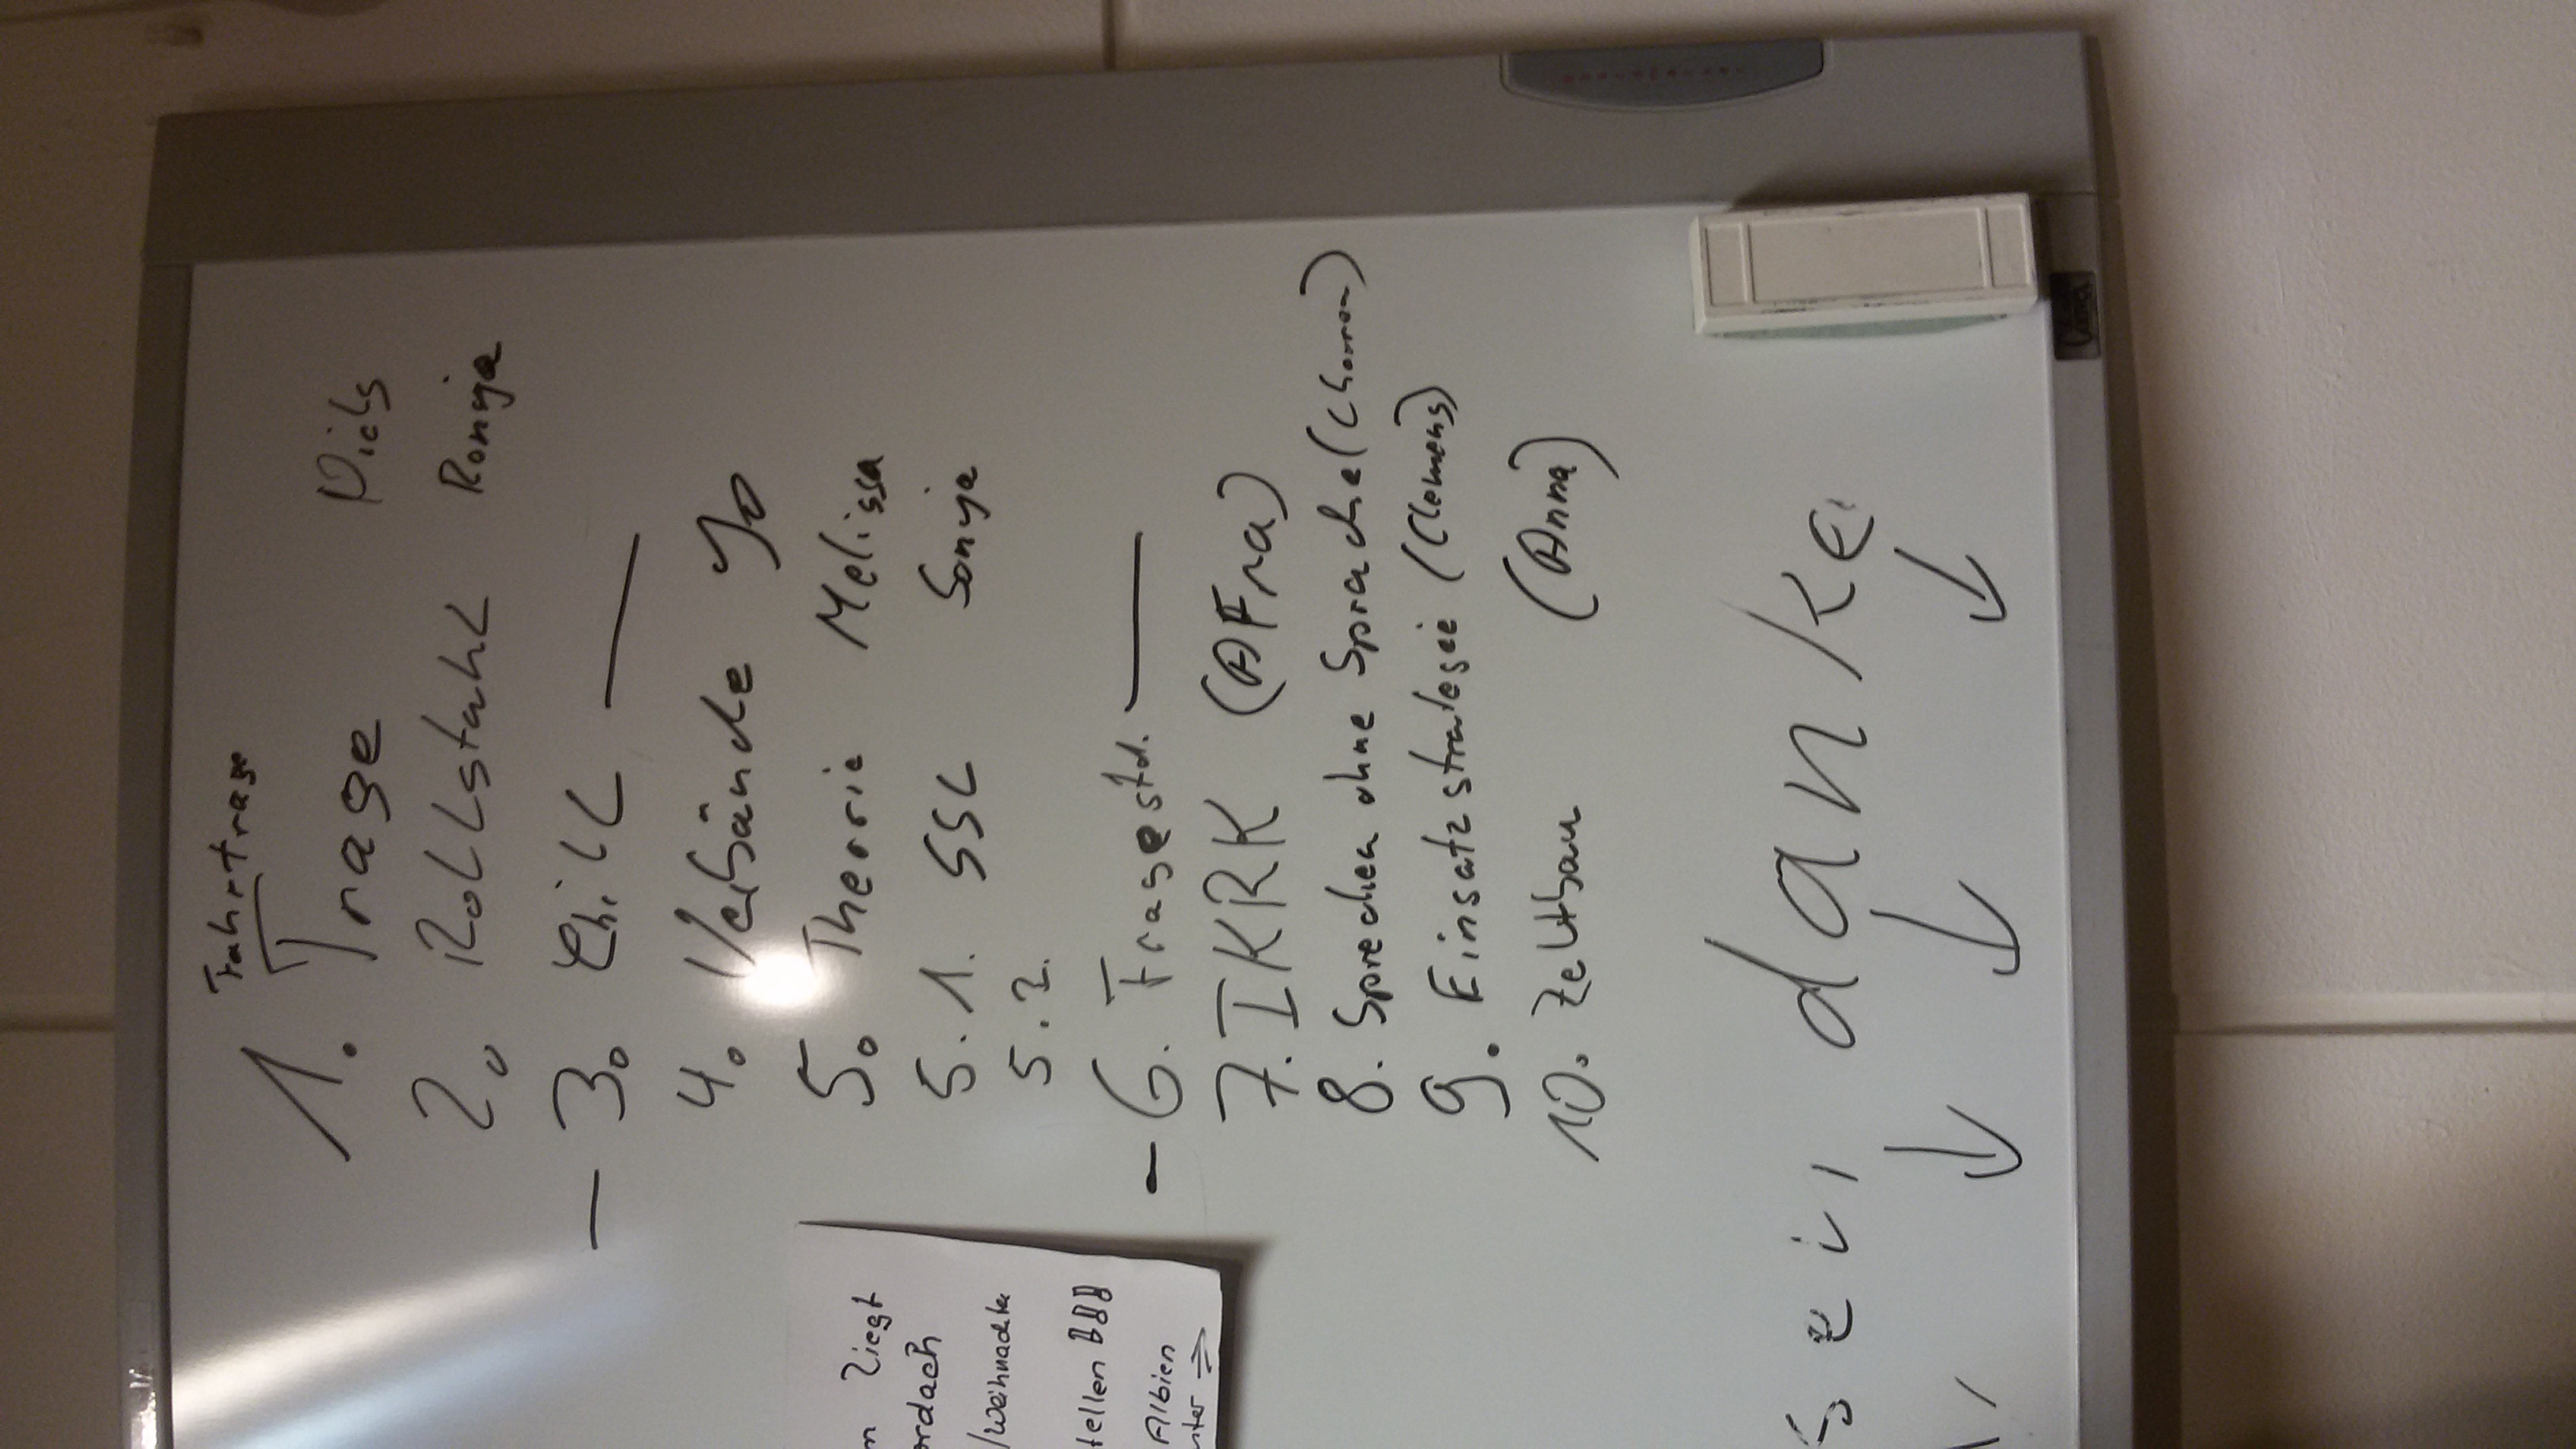 Fahrtrage
1. Trage Niels
2. Rollstuhl Ronja
– 3. Chill —
4. Verbände Jo
5. Therrie Melissa
5.1. SSL Sonja
5.2.
– 6. Fragestd. —
7. IKRK (AFra)
8. Sprechen ohne Sprache
9. Einsatzstralegie (Clemens)
10. Zeltbau (Anna)
sein danke
↓ ↓ ↓
n liegt
ordach
/Weihnachte
tellen !!!
Albien
nter ⇒